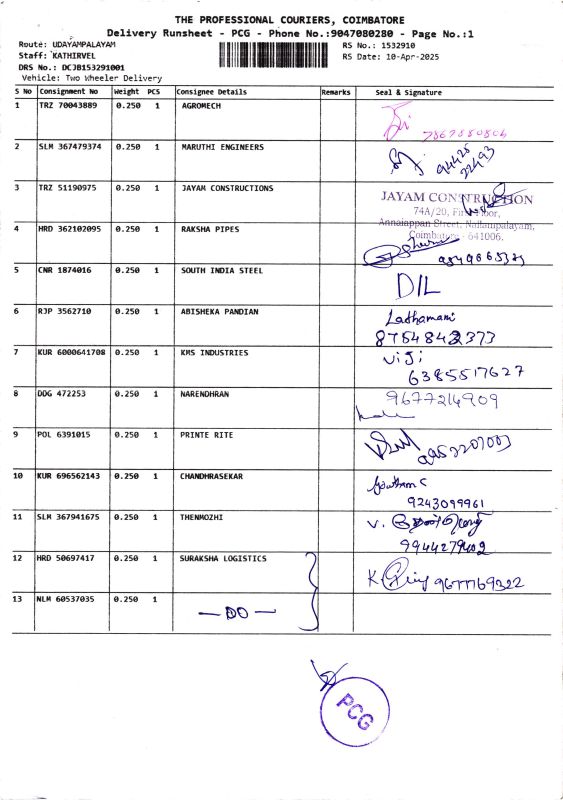 THE PROFESSIONAL COURIERS, COIMBATORE
Delivery Runsheet - PCG - Phone No.:9047080280 - Page No.:1
Route: UDAYAMPALAYAM RS No.: 1532910
Staff: KATHIRVEL RS Date: 10-Apr-2025
DRS No.: DCJB153291001
Vehicle: Two Wheeler Delivery
S No Consignment No Weight PCS Consignee Details Remarks Seal & Signature
1 TRZ 70043889 0.250 1 AGROMECH
2 SLM 367479374 0.250 1 MARUTHI ENGINEERS 94425
22493
3 TRZ 51190975 0.250 1 JAYAM CONSTRUCTIONS JAYAM CONSTRUCTION
74A/20, First Floor,
Annaiappan Street, Nallampalayam,
Coimbatore - 641006.
4 HRD 362102095 0.250 1 RAKSHA PIPES
5 CNR 1874016 0.250 1 SOUTH INDIA STEEL DIL
6 RJP 3562710 0.250 1 ABISHEKA PANDIAN Lathamani
8754842373
7 KUR 6000641708 0.250 1 KMS INDUSTRIES viji
6385517627
8 DDG 472253 0.250 1 NARENDHRAN 9677214909
9 POL 6391015 0.250 1 PRINTE RITE
10 KUR 696562143 0.250 1 CHANDHRASEKAR Gowtham C
9243099961
11 SLM 367941675 0.250 1 THENMOZHI V.
9944279402
12 HRD 50697417 0.250 1 SURAKSHA LOGISTICS 9677769322
13 NLM 60537035 0.250 1 — DO —
PCG